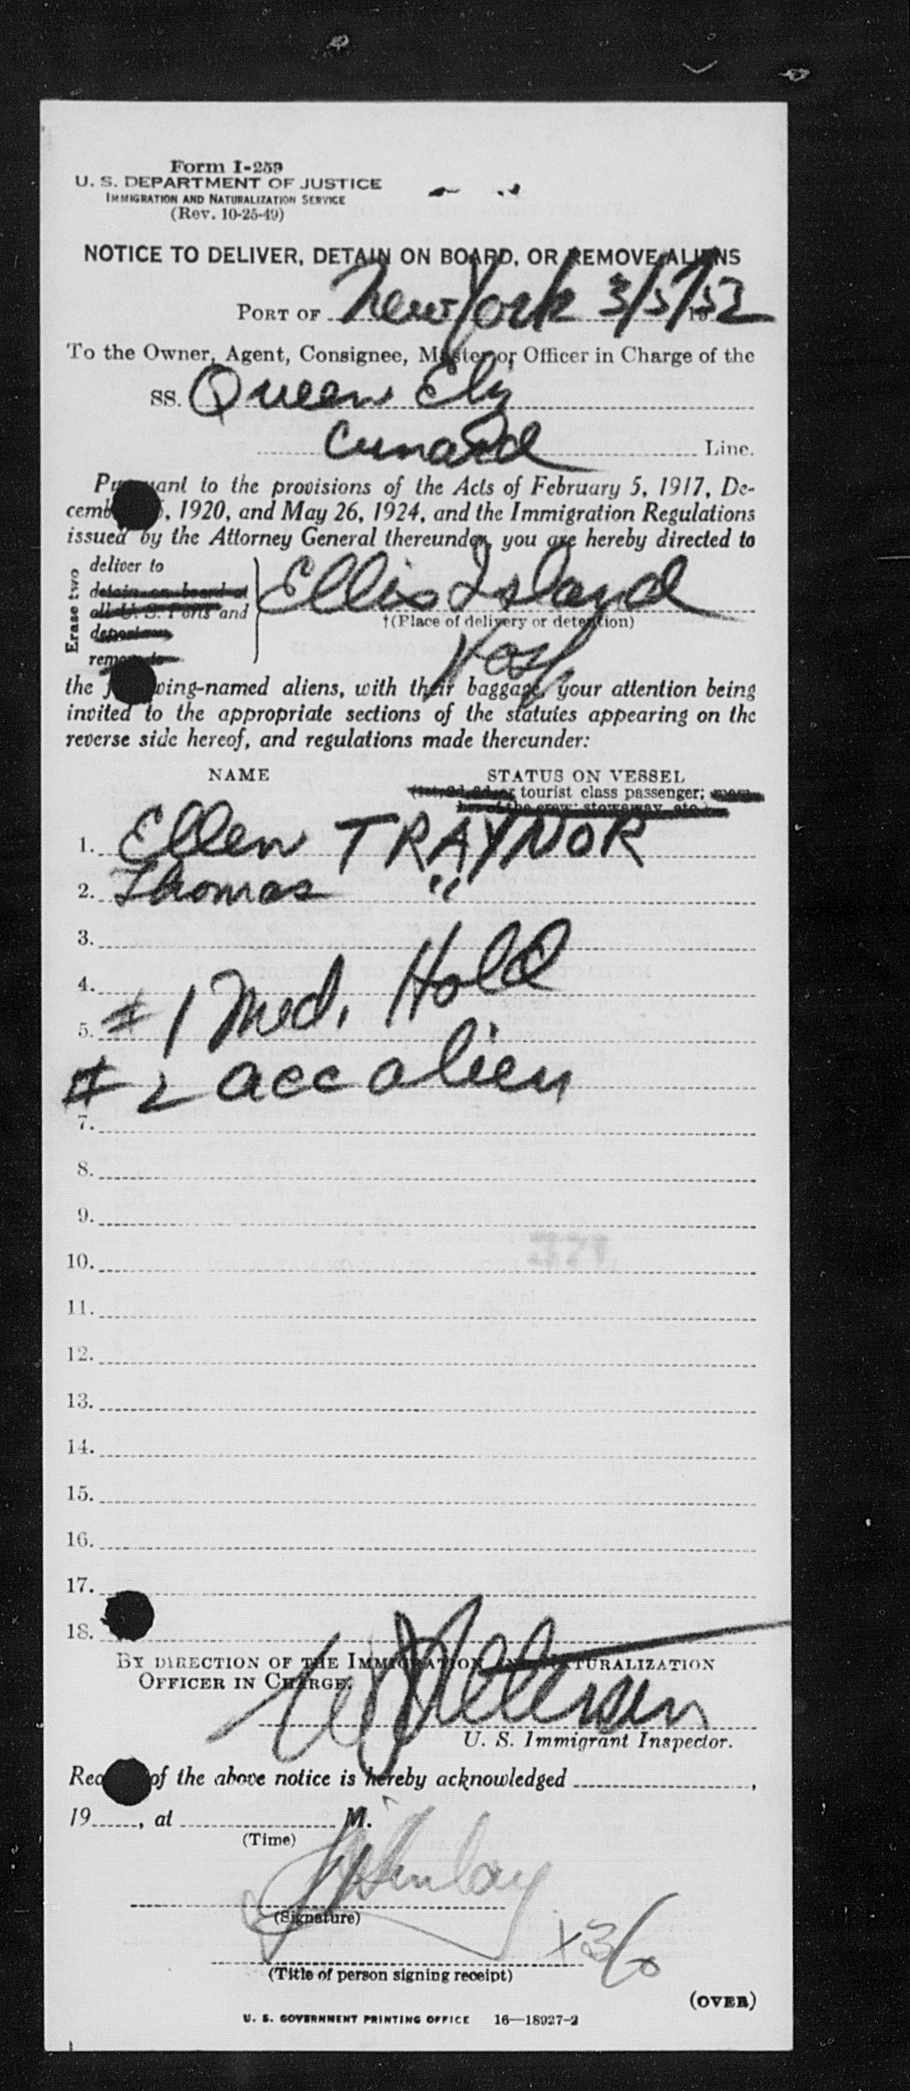 Form I-259
U. S. DEPARTMENT OF JUSTICE
IMMIGRATION AND NATURALIZATION SERVICE
(Rev. 10-25-49)
NOTICE TO DELIVER, DETAIN ON BOARD, OR REMOVE ALIENS
PORT OF New York 3/5/52
To the Owner, Agent, Consignee, Master or Officer in Charge of the
SS. Queen Eliz
Cunard Line.
Pursuant to the provisions of the Acts of February 5, 1917, De-
cember 1920, and May 26, 1924, and the Immigration Regulations
issued by the Attorney General thereunder, you are hereby directed to
Erase two
deliver to
detain on board at
all U. S. Ports and
deport on
remove to
Ellis Island
†(Place of delivery or detention)
Hosp
the following-named aliens, with their baggage, your attention being
invited to the appropriate sections of the statutes appearing on the
reverse side hereof, and regulations made thereunder:
NAME STATUS ON VESSEL
(1st, 2d, 3d, or tourist class passenger; mem-
ber of the crew; stowaway, etc.)
1. Ellen TRAYNOR
2. Thomas "
3.
4.
5. #1 Med. Hold
#2 acc alien
7.
8.
9.
10.
371
11.
12.
13.
14.
15.
16.
17.
18.
BY DIRECTION OF THE IMMIGRATION AND NATURALIZATION
OFFICER IN CHARGE.
Petersen
U. S. Immigrant Inspector.
Receipt of the above notice is hereby acknowledged ,
19 , at M.
(Time)
(Signature)
(Title of person signing receipt)
(OVER)
U. S. GOVERNMENT PRINTING OFFICE 16—18927-2